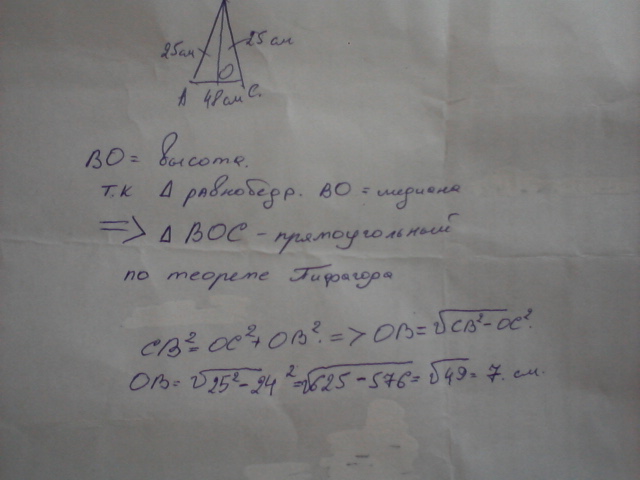 25см 25см
O
A 48см C.
BO = высота.
т.к Δ равнобедр. BO = медиана
=> Δ BOC - прямоугольный
по теореме Пифагора
CB² = OC² + OB². => OB = √CB² - OC².
OB = √25² - 24² = √625 - 576 = √49 = 7. см.